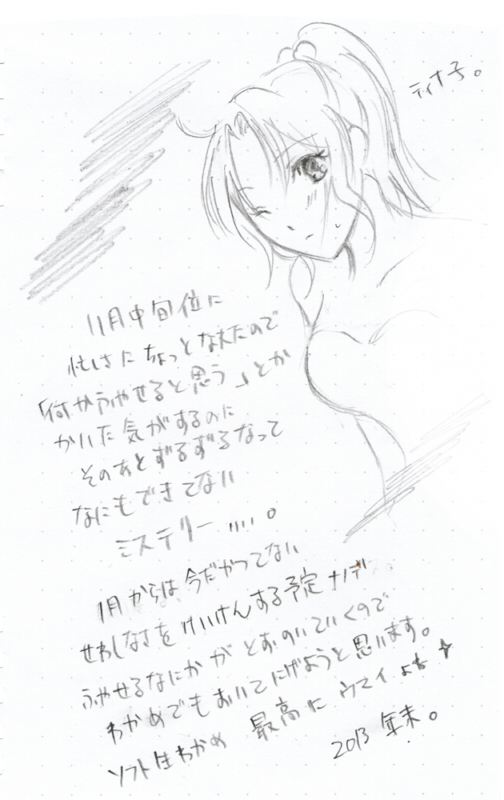 ティナ子。
11月中旬位に
忙しさにちょっとなえたので
「何かふやせると思う」とか
かいた気がするのに
そのあとずるずるなって
なにもできてない
ミステリー....。
1月からは今だかつてない
せわしなさをけいけんする予定ナノデ
ふやせるなにかがとおのいていくので
わかめでもおいてにげようと思います。
ソフト生わかめ 最高にウマイよね☆
2013 年末。